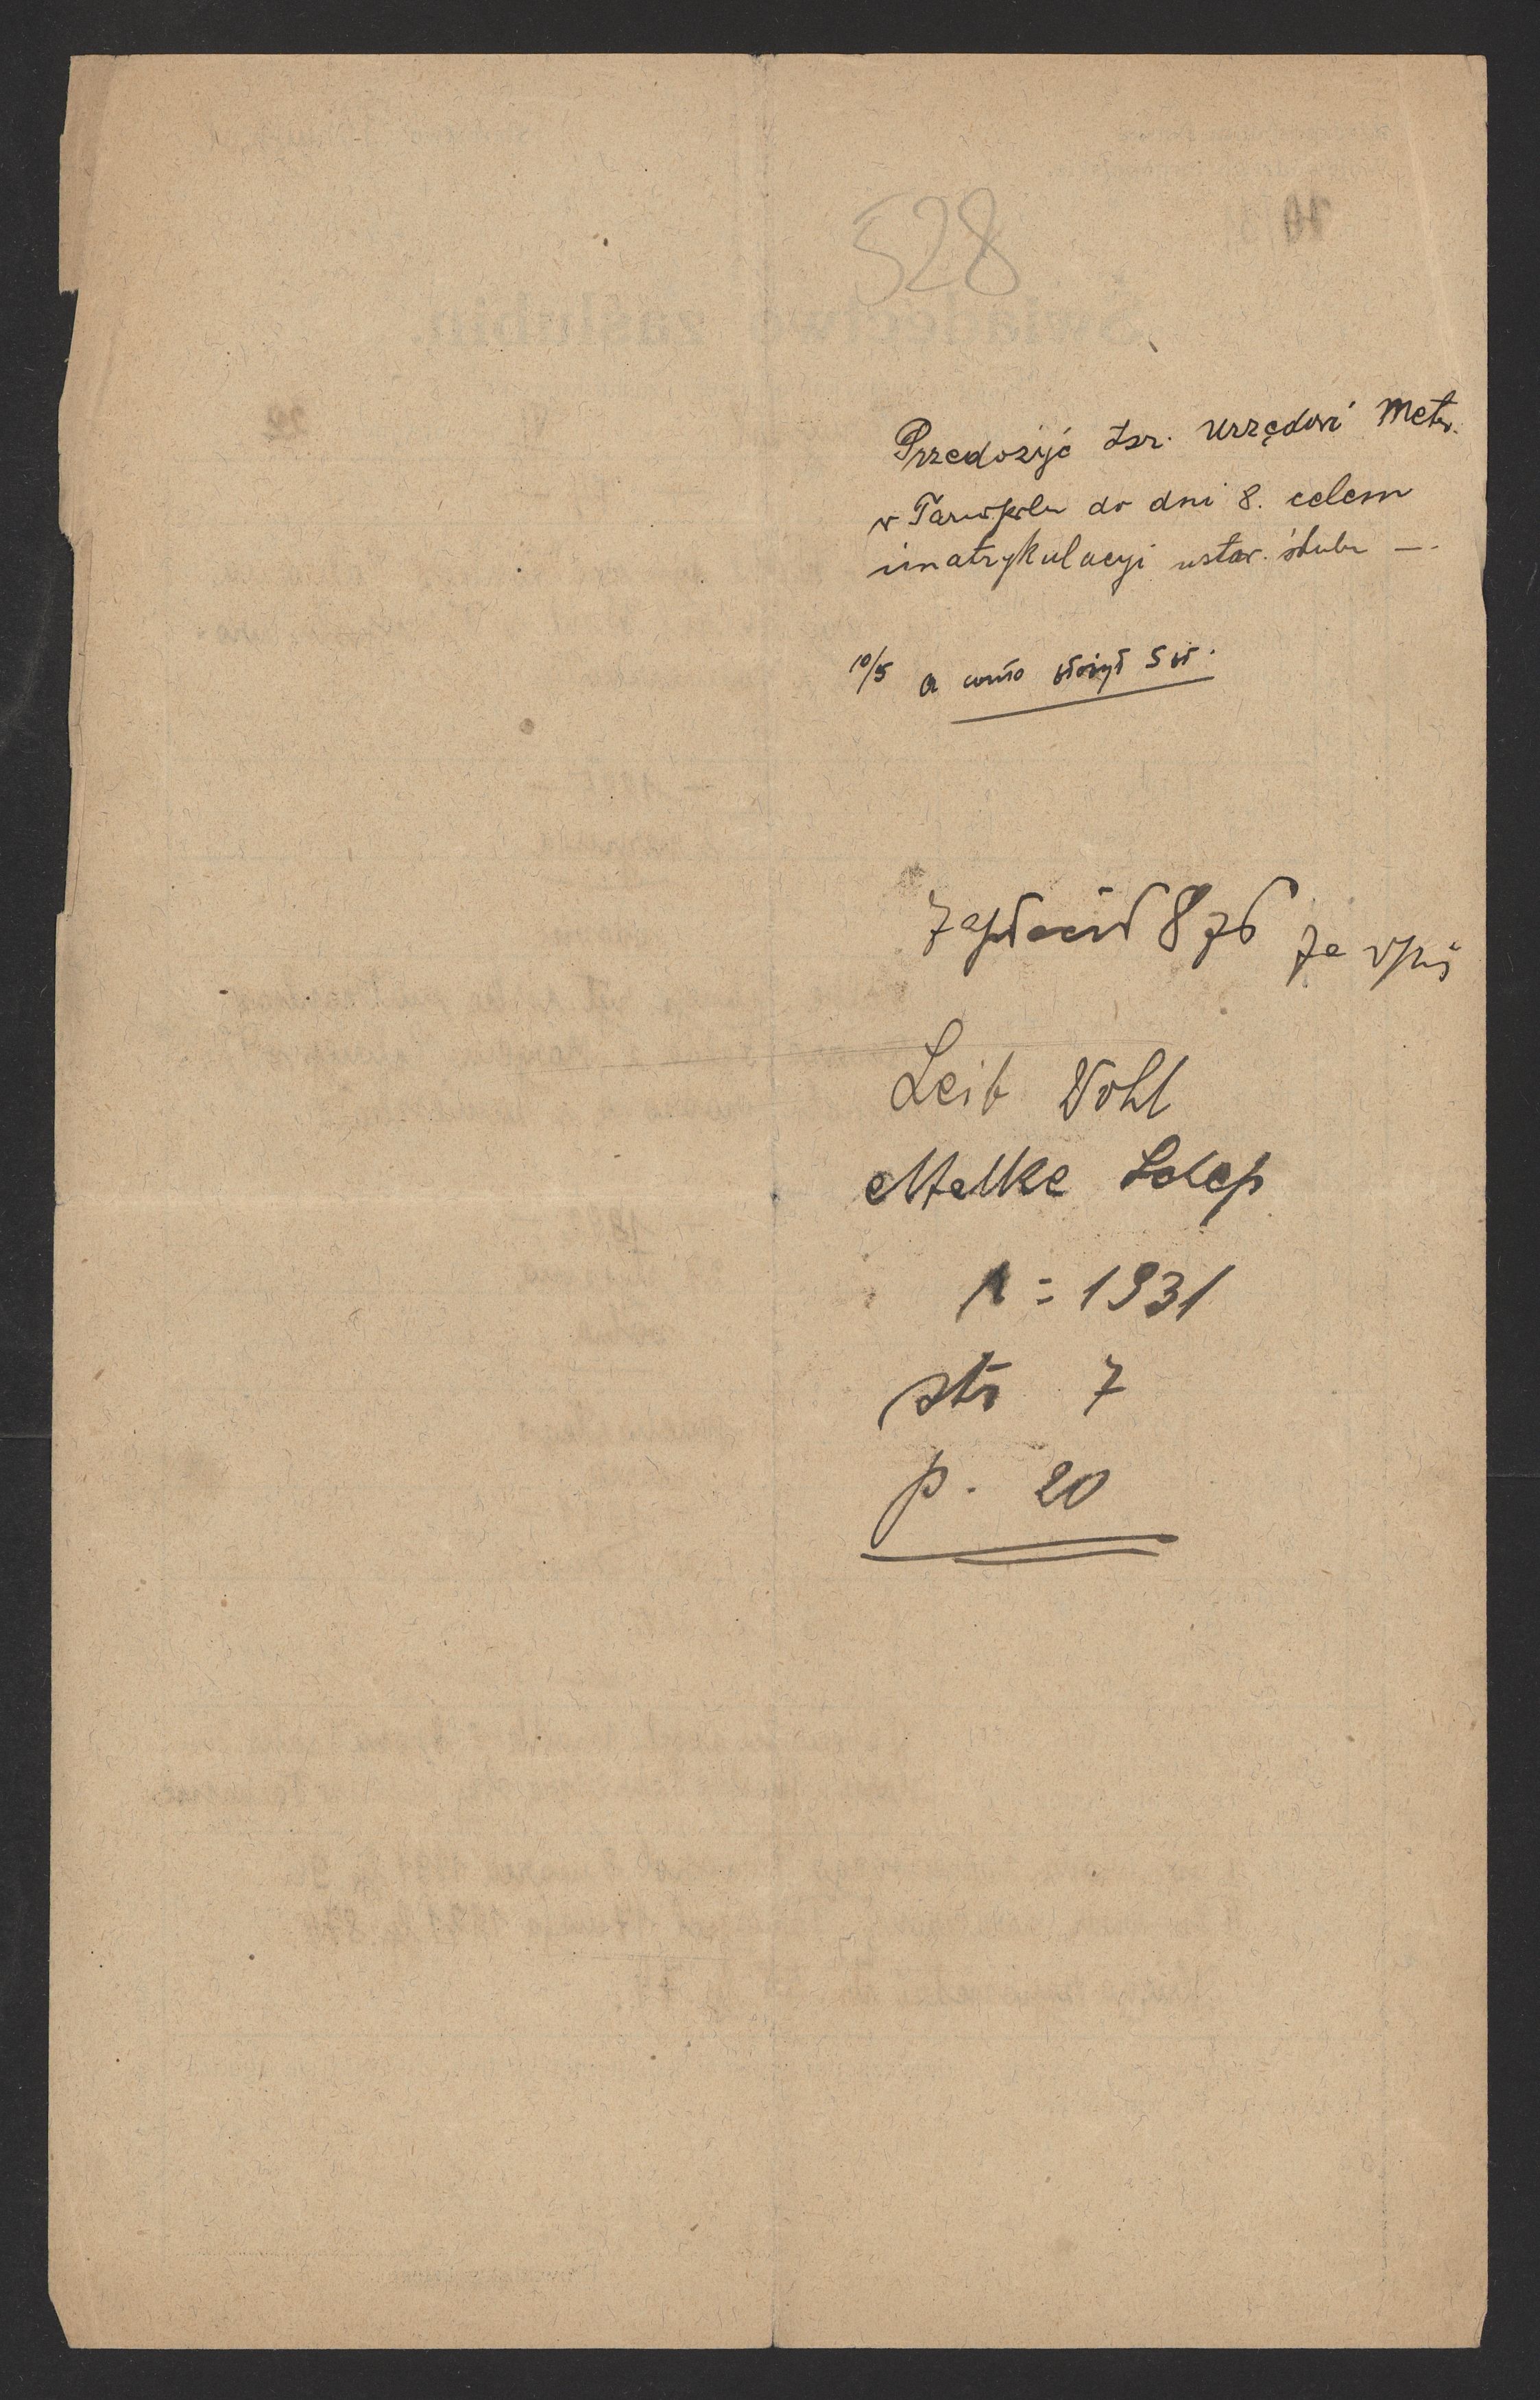 528
Przedożyć Izr. Urzędowi Metr.
w Tarnopolu do dni 8. celem
imatrykulacyi ustaw. ślubu —.
10/5 a conto złożył 5 zł.
Zapłacił 8 zł za wpis
Leib Wohl
Malke
r = 1931
str 7
p. 20